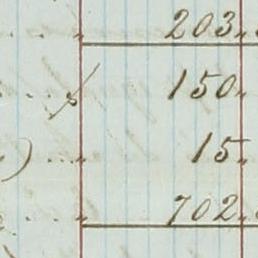 203.
150.
) ... 15.
702.